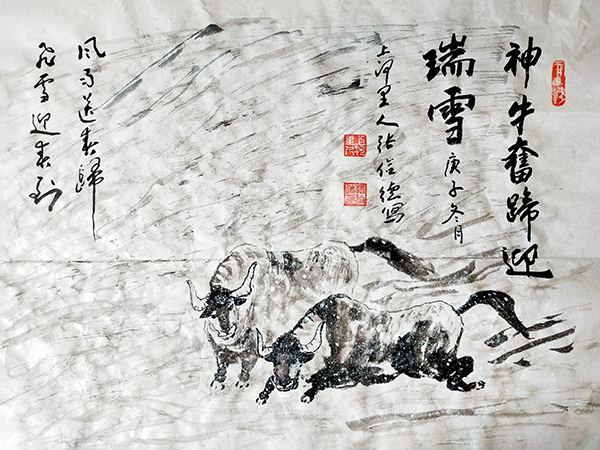 神牛奮蹄迎
瑞雪
庚子冬月
上河里人张信德写
风雨送春歸
飛雪迎春到